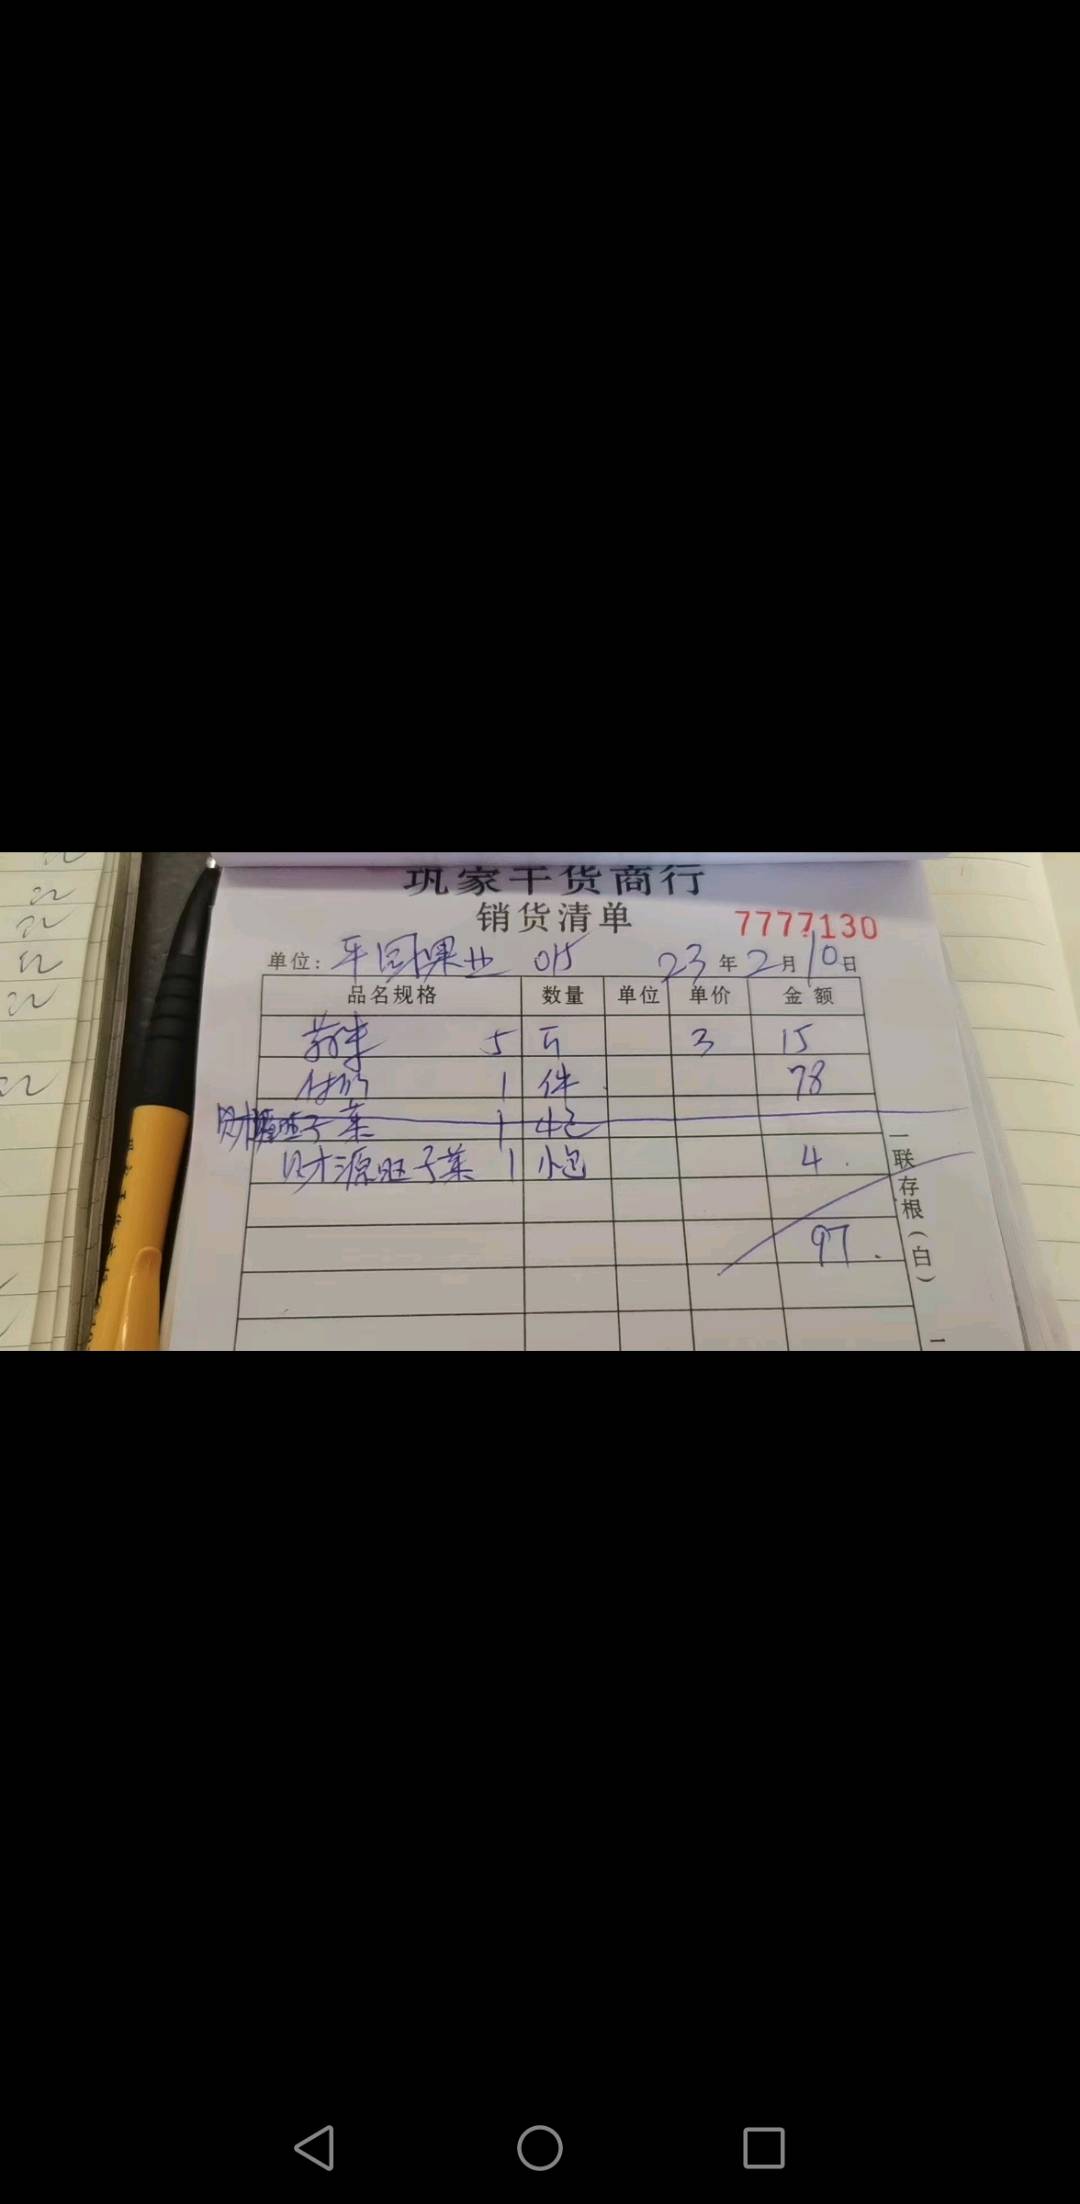 巩家干货商行
销货清单
7777130
单位: 平园果业 015 23年2月10日
品名规格 数量 单位 单价 金额
5 斤 3 15
1 件 78
旺子菜 1 小包
财源旺子菜 1 小包 4
97
一联存根(白)